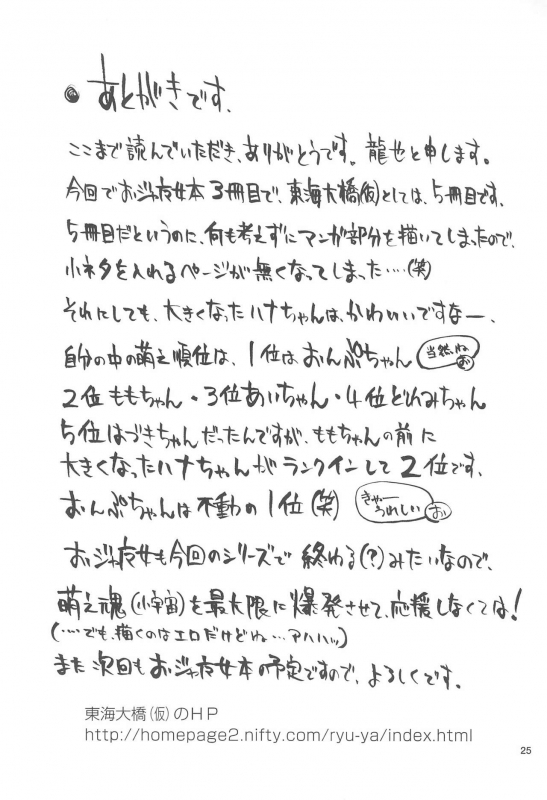 ● あとがきです、
ここまで読んでいただき、ありがとうです。龍也と申します。
今回でおジャ魔女本3冊目で、東海大橋(仮)としては、5冊目です。
5冊目だというのに、何も考えずにマンガ部分を描いてしまったので、
小ネタを入れるページが無くなってしまった‥‥(笑)
それにしても、大きくなったハナちゃんは、かわいいですなー、
自分の中の萌え順位は、1位はおんぷちゃん 当然ね お
2位ももちゃん・3位あいちゃん・4位どれみちゃん
5位はづきちゃんだったんですが、ももちゃんの前に
大きくなったハナちゃんがランクインして2位です、
おんぷちゃんは不動の1位(笑) きゃー うれしい お
おジャ魔女も今回のシリーズで終わる(?)みたいなので、
萌え魂(小宇宙)を最大限に爆発させて、応援しなくては!
(‥‥でも、描くのはエロだけどね…アハハッ)
また次回もおジャ魔女本の予定ですので、よろしくです。
東海大橋(仮)のHP
http://homepage2.nifty.com/ryu-ya/index.html
25